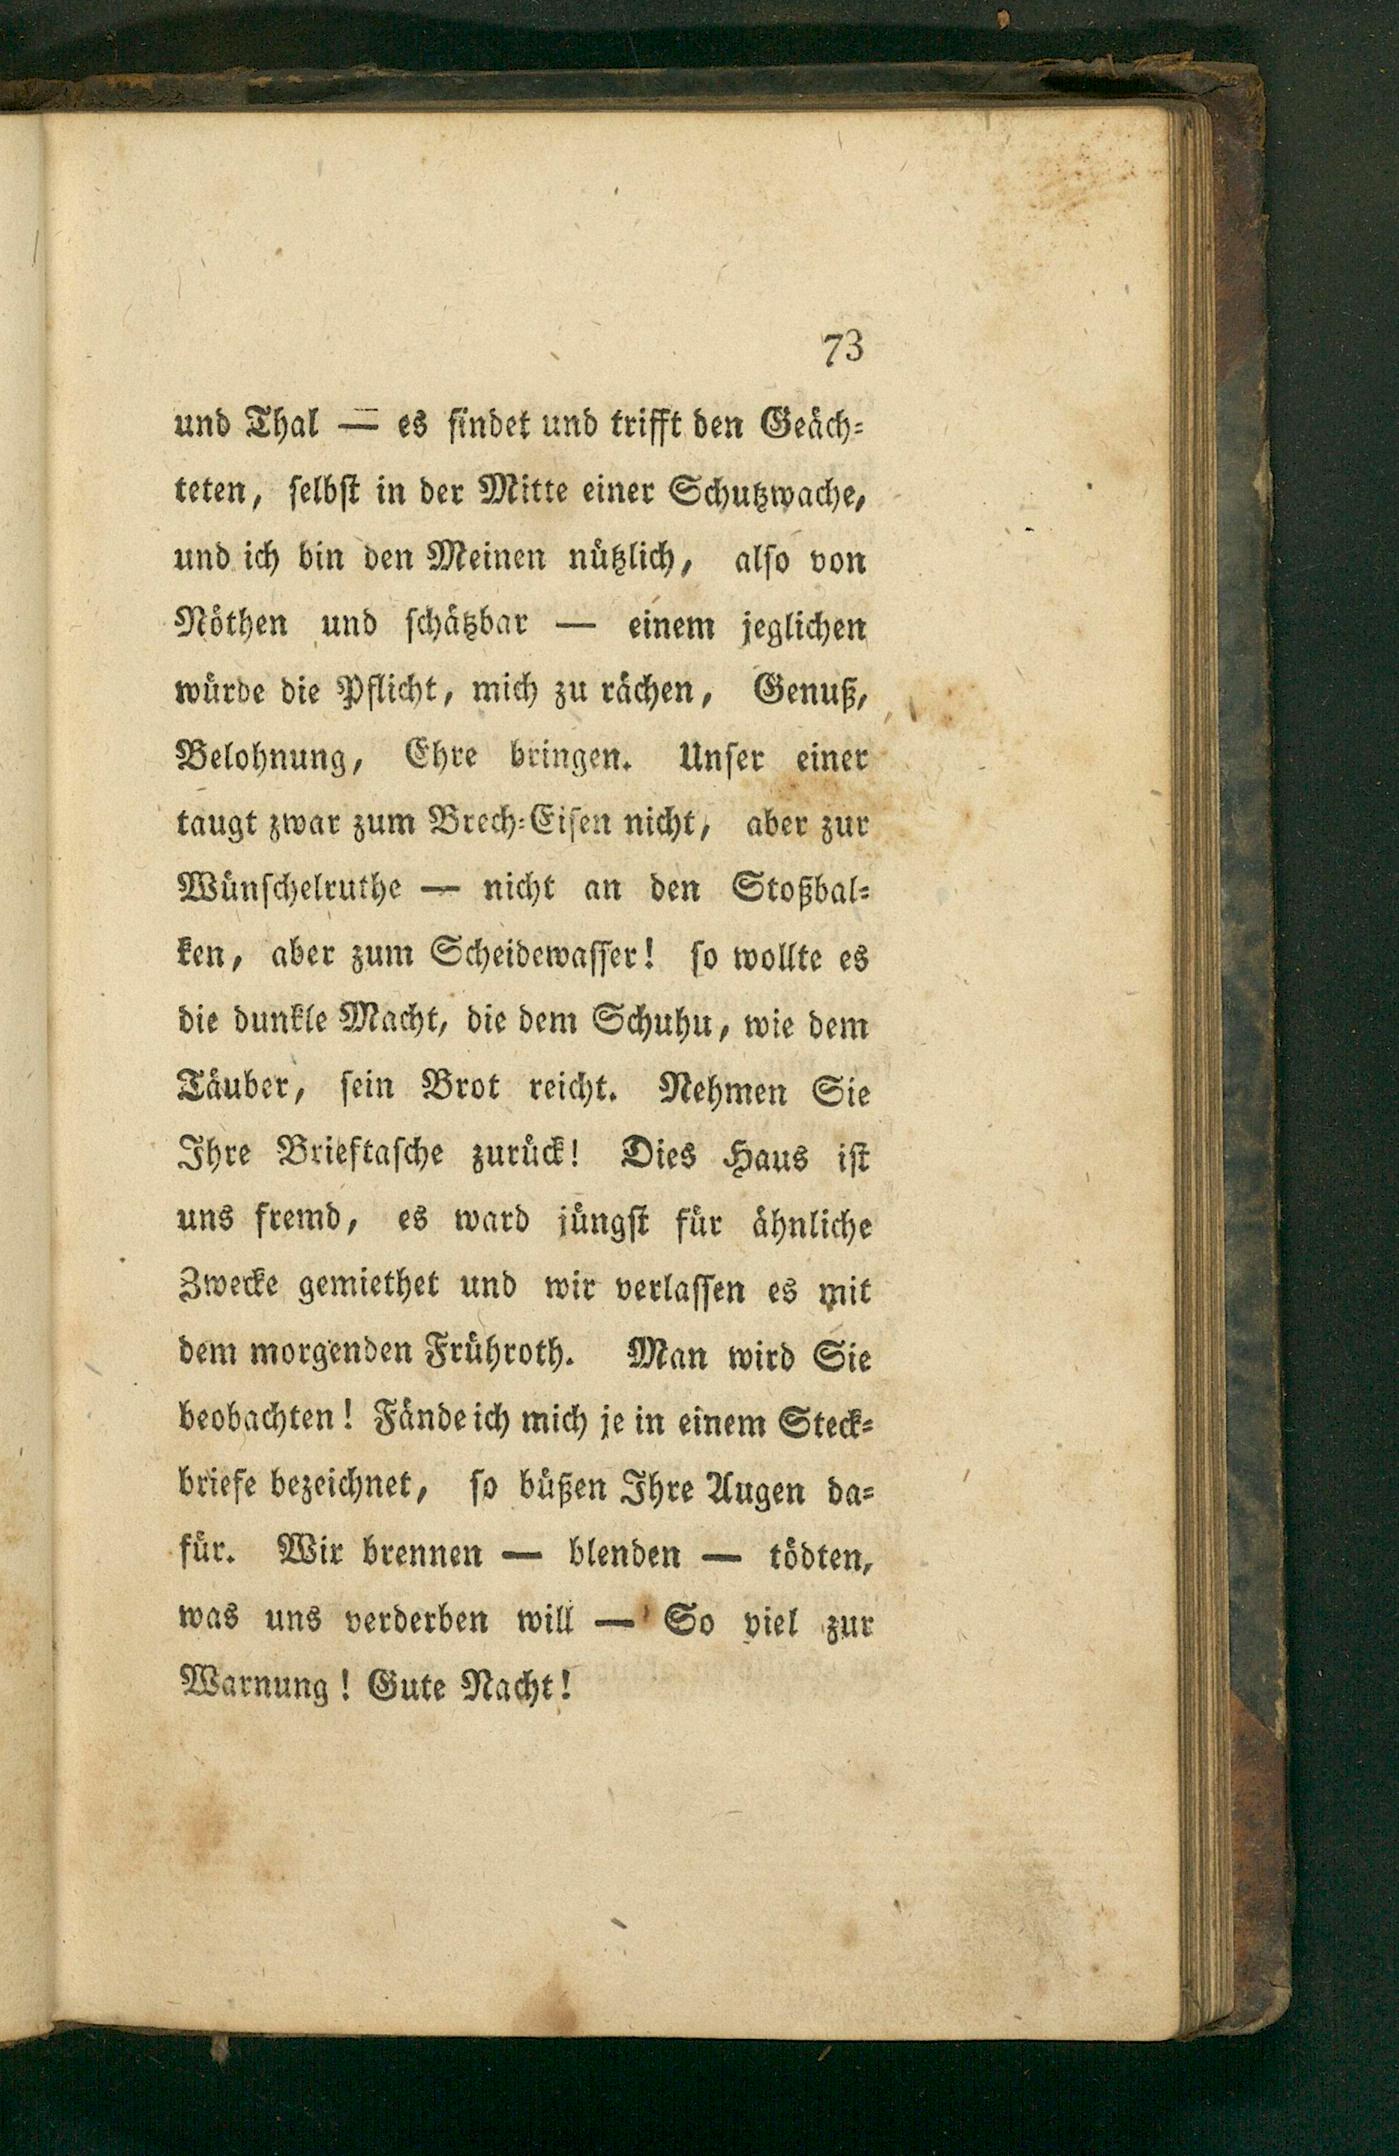 73
und Thal — es findet und trifft den Geäch-
teten, selbst in der Mitte einer Schutzwache,
und ich bin den Meinen nützlich, also von
Nöthen und schätzbar — einem jeglichen
würde die Pflicht, mich zu rächen, Genuß,
Belohnung, Ehre bringen. Unser einer
taugt zwar zum Brech-Eisen nicht, aber zur
Wünschelruthe — nicht an den Stoßbal-
ken, aber zum Scheidewasser! so wollte es
die dunkle Macht, die dem Schuhu, wie dem
Täuber, sein Brot reicht. Nehmen Sie
Ihre Brieftasche zurück! Dies Haus ist
uns fremd, es ward jüngst für ähnliche
Zwecke gemiethet und wir verlassen es mit
dem morgenden Frühroth. Man wird Sie
beobachten! Fände ich mich je in einem Steck-
briefe bezeichnet, so büßen Ihre Augen da-
für. Wir brennen — blenden — tödten,
was uns verderben will — So viel zur
Warnung! Gute Nacht!